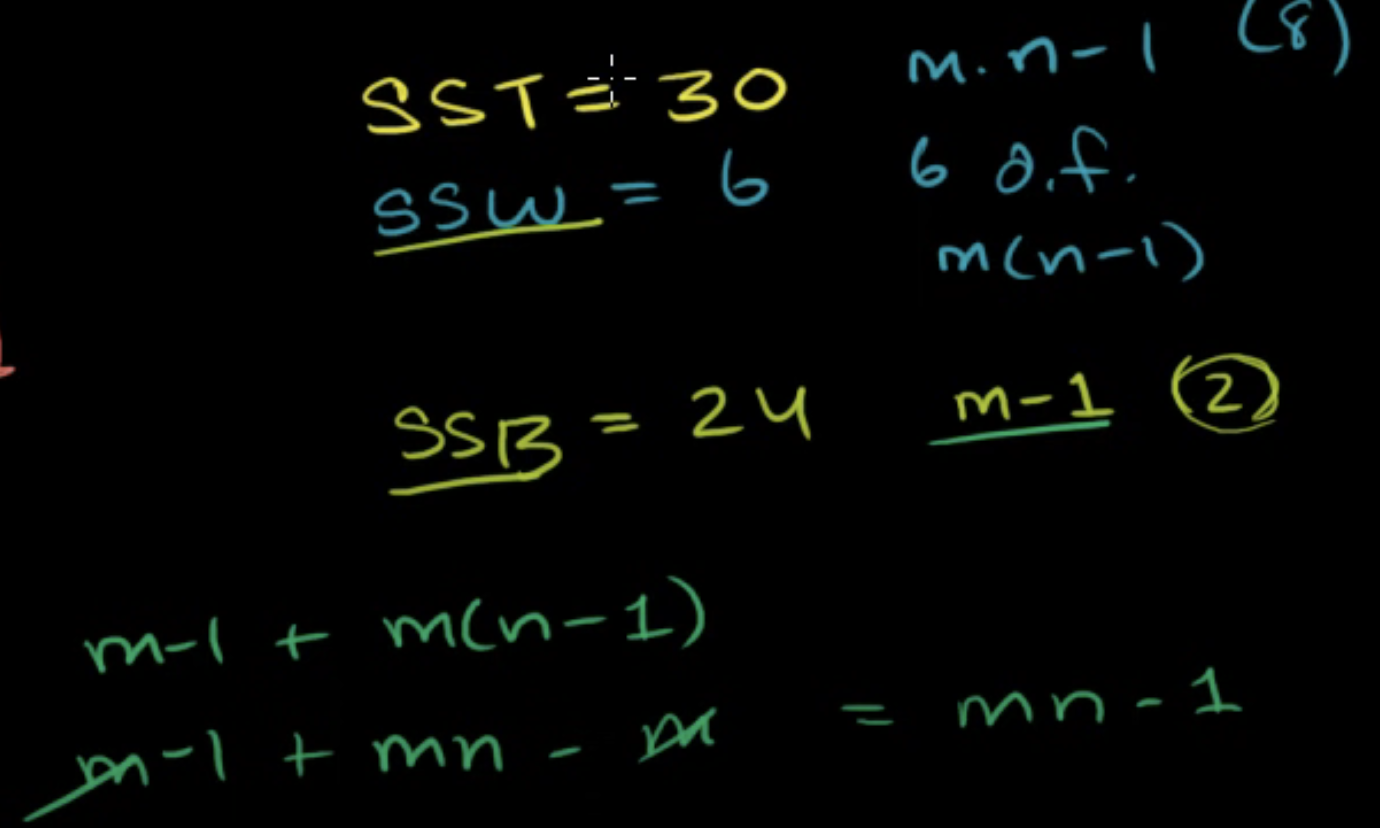 SST = 30 m·n-1 (8)
SSW = 6 6 d.f.
m(n-1)
SSB = 24 m-1 2
m-1 + m(n-1)
m-1 + mn - m = mn - 1